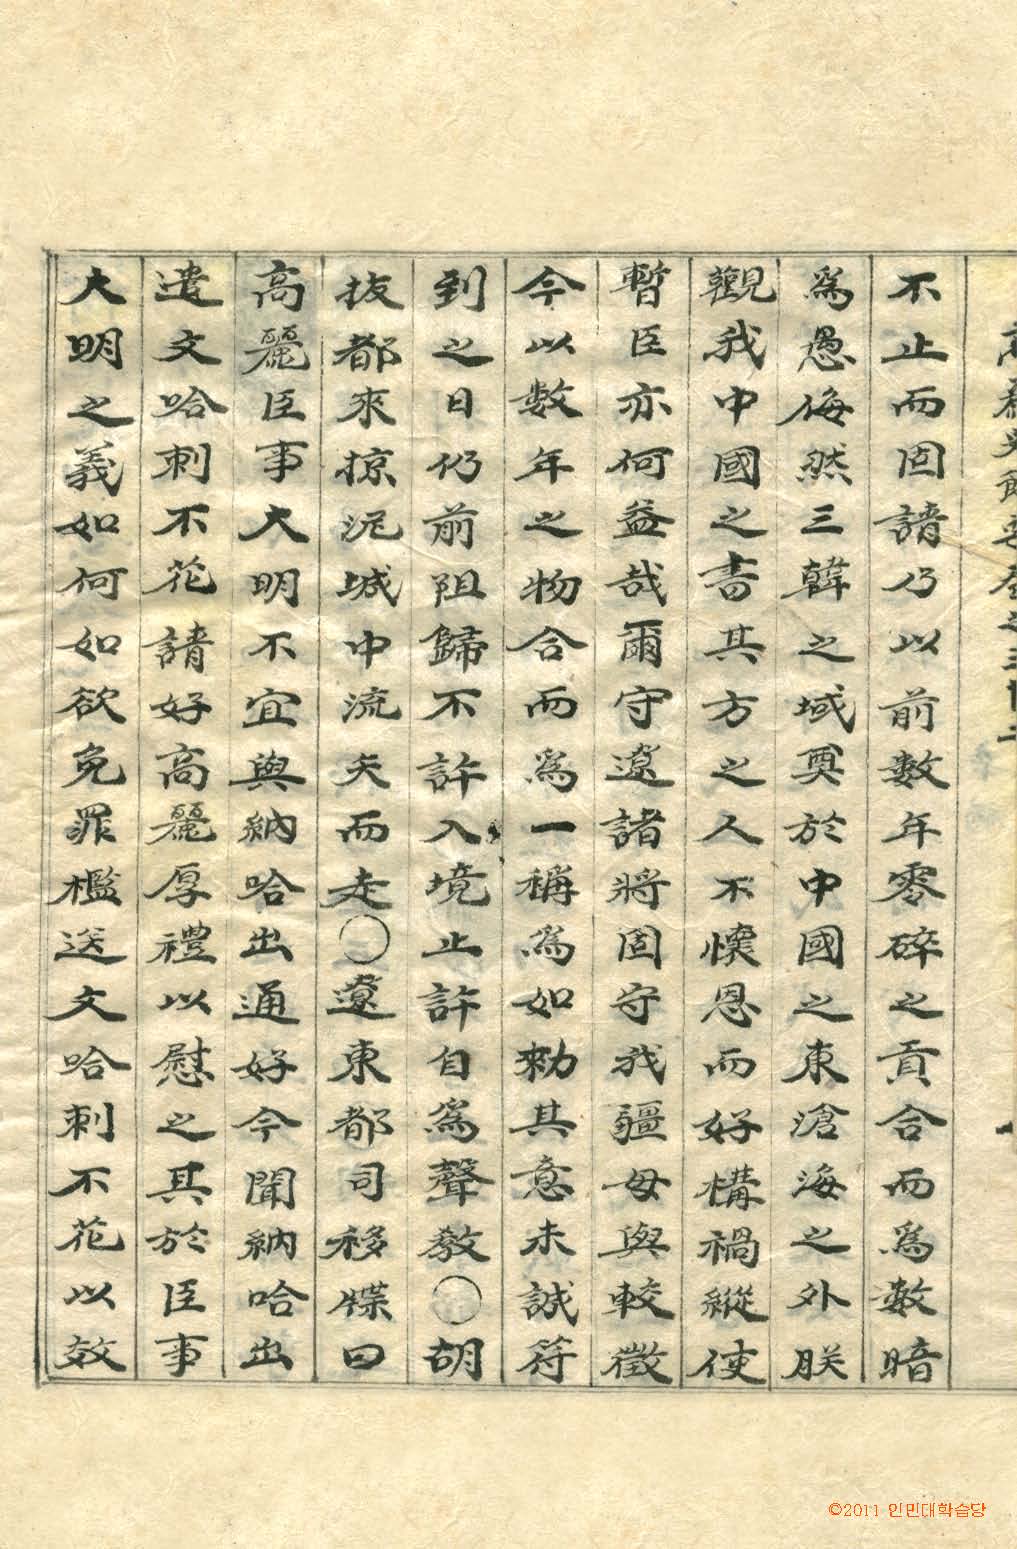 不止而固請乃以前數年零碎之貢合而爲數暗
爲愚侮然三韓之域奠於中國之東滄海之外朕
觀我中國之書其方之人不懷恩而好構禍縱使
暫臣亦何益哉爾守遼諸將固守我疆毋與較徵
今以數年之物合而爲一稱爲如勑其意未誠符
到之日仍前阻歸不許入境止許自爲聲教〇胡
拔都來掠泥城中流矢而走〇遼東都司移牒曰
高麗臣事大明不宜與納哈出通好今聞納哈出
遣文哈剌不花請好高麗厚禮以慰之其於臣事
大明之義如何如欲免罪檻送文哈剌不花以效
©2011 인민대학습당